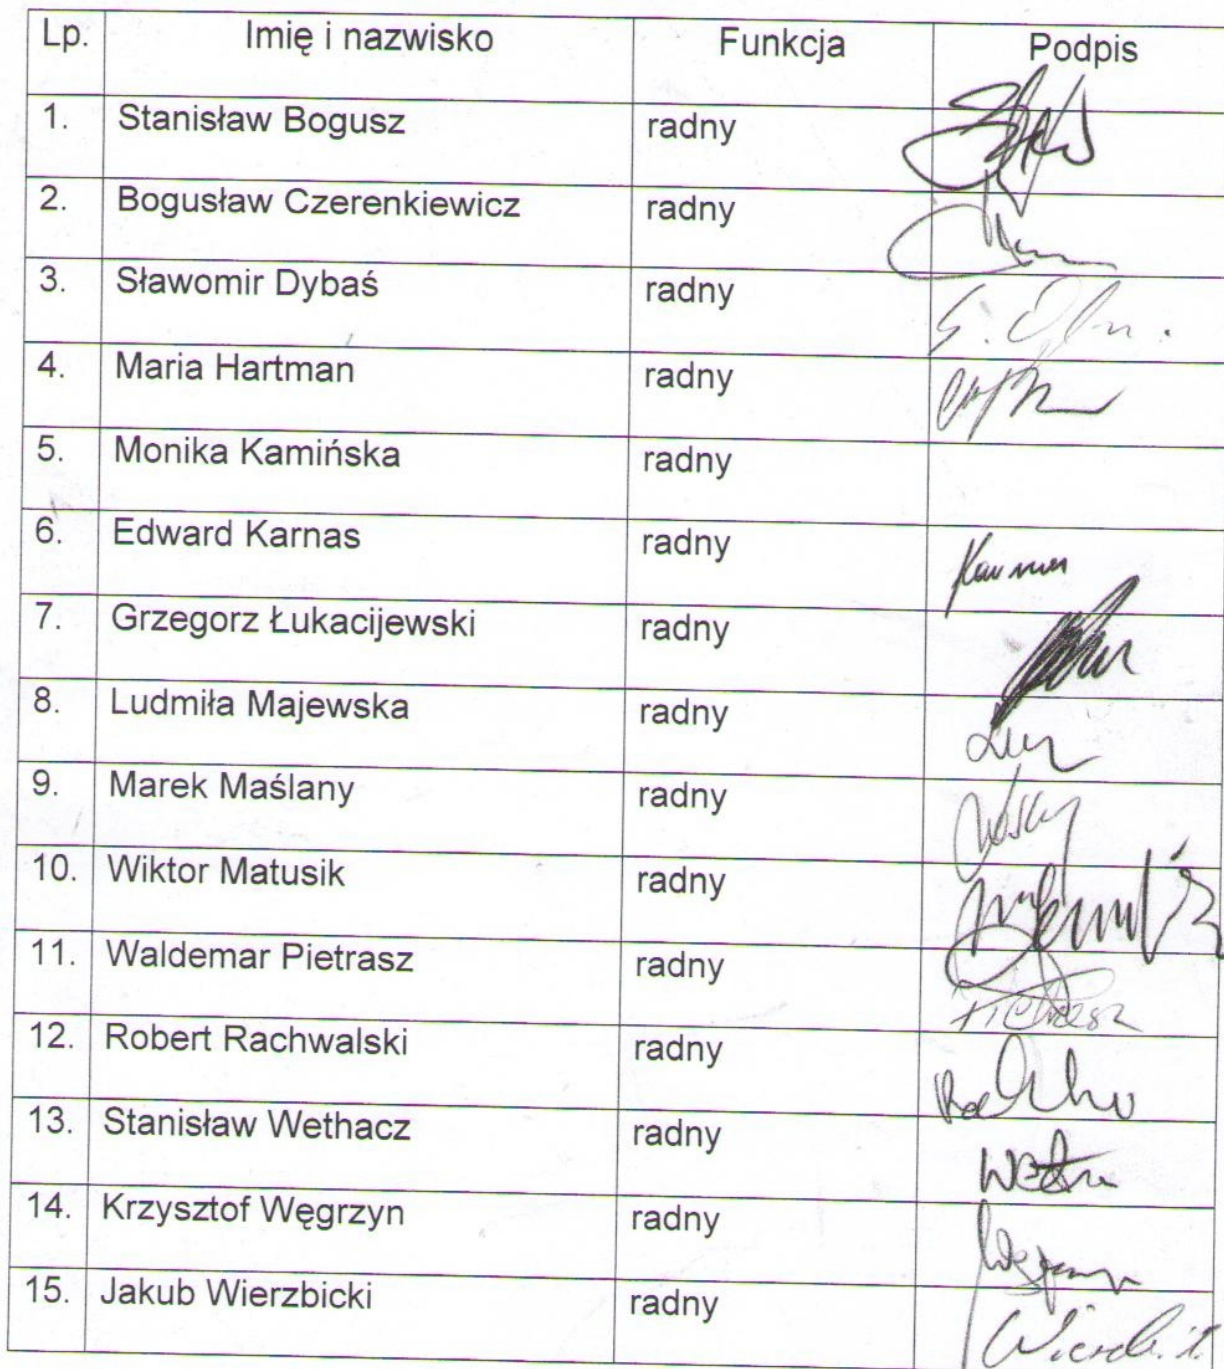 Lp. Imię i nazwisko Funkcja Podpis
1. Stanisław Bogusz radny
2. Bogusław Czerenkiewicz radny
3. Sławomir Dybaś radny
4. Maria Hartman radny
5. Monika Kamińska radny
6. Edward Karnas radny
7. Grzegorz Łukacijewski radny
8. Ludmiła Majewska radny
9. Marek Maślany radny
10. Wiktor Matusik radny
11. Waldemar Pietrasz radny
12. Robert Rachwalski radny
13. Stanisław Wethacz radny
14. Krzysztof Węgrzyn radny
15. Jakub Wierzbicki radny